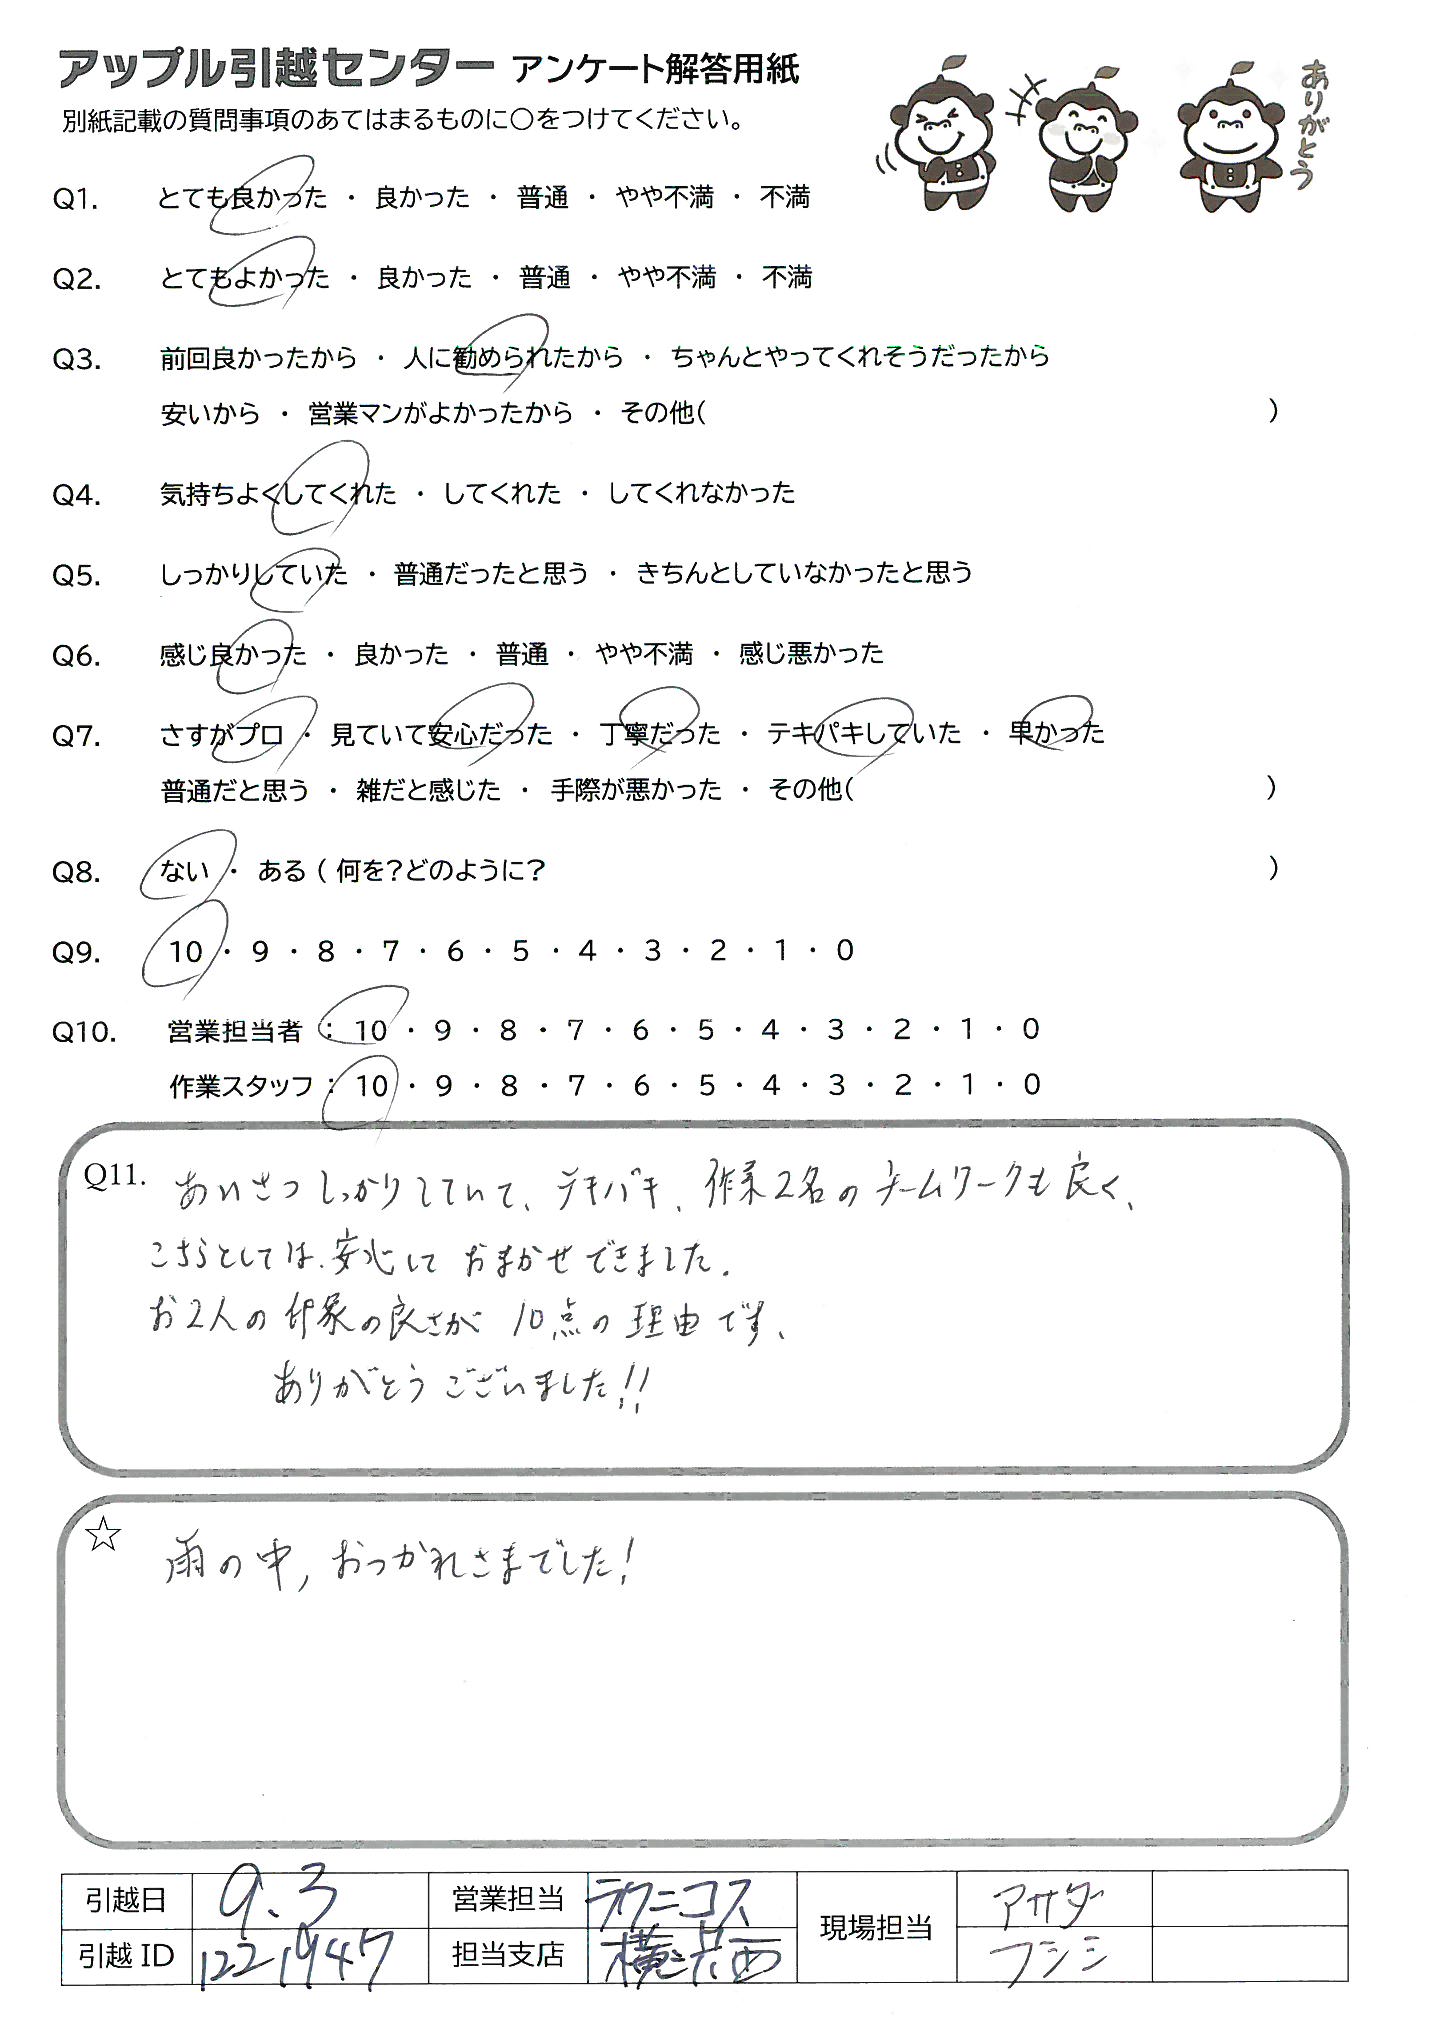 アップル引越センター アンケート解答用紙
別紙記載の質問事項のあてはまるものに○をつけてください。
ありがとう
Q1. とても良かった ・ 良かった ・ 普通 ・ やや不満 ・ 不満
Q2. とてもよかった ・ 良かった ・ 普通 ・ やや不満 ・ 不満
Q3. 前回良かったから ・ 人に勧められたから ・ ちゃんとやってくれそうだったから
安いから ・ 営業マンがよかったから ・ その他( )
Q4. 気持ちよくしてくれた ・ してくれた ・ してくれなかった
Q5. しっかりしていた ・ 普通だったと思う ・ きちんとしていなかったと思う
Q6. 感じ良かった ・ 良かった ・ 普通 ・ やや不満 ・ 感じ悪かった
Q7. さすがプロ ・ 見ていて安心だった ・ 丁寧だった ・ テキパキしていた ・ 早かった
普通だと思う ・ 雑だと感じた ・ 手際が悪かった ・ その他( )
Q8. ない ・ ある ( 何を?どのように? )
Q9. 10 ・ 9 ・ 8 ・ 7 ・ 6 ・ 5 ・ 4 ・ 3 ・ 2 ・ 1 ・ 0
Q10. 営業担当者 : 10 ・ 9 ・ 8 ・ 7 ・ 6 ・ 5 ・ 4 ・ 3 ・ 2 ・ 1 ・ 0
作業スタッフ : 10 ・ 9 ・ 8 ・ 7 ・ 6 ・ 5 ・ 4 ・ 3 ・ 2 ・ 1 ・ 0
Q11. あいさつしっかりしていて、テキパキ、作業2名のチームワークも良く、
こちらとしては、安心して おまかせできました。
お2人の印象の良さが 10点の理由です、
ありがとうございました!!
☆ 雨の中, おつかれさまでした!
引越日 9.3 営業担当 現場担当 アサダ
引越ID 1221947 担当支店 横浜西 フシミ